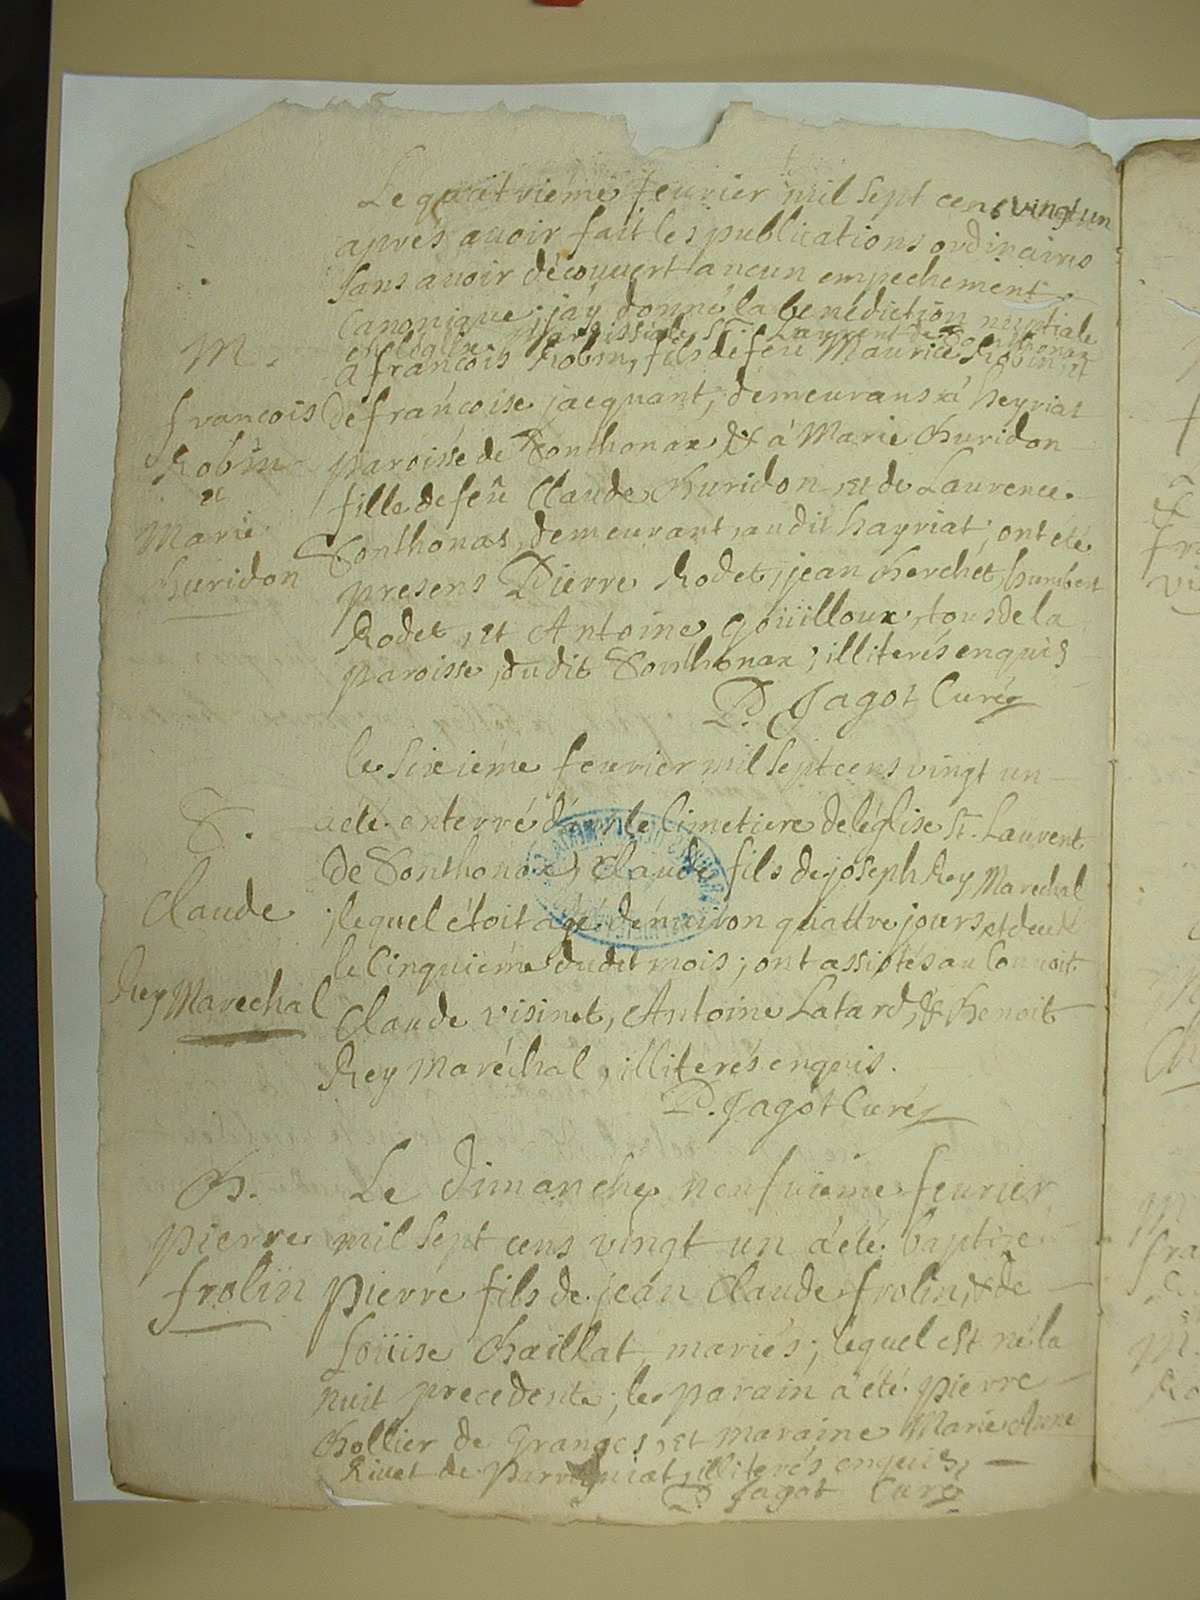 Le quatrieme feurier mil sept cens vingt un
aprés auoir fait les publications ordinaires
sans auoir découuert aucun empechement
Canonique; j'ay donné la benédiction nuptiale
en léglise paroissiale St. Laurent de Sonthonax
M.
à françois Robin, fils de feu Maurice Robin, et
françois
de françoise jacquant, demeurans à heyriat
Robin
paroisse de Sonthonax & à Marie Buridon
et
fille de feu Claude Buridon et de Laurence
Marie
Sonthonax, demeurant audit hayriat; ont été
Buridon
presens Pierre Rodet, jean Berchet, humbert
Rodet, et Antoine goüilloux, tous de la
paroisse dudit Sonthonax; illiterés enquis
P. Jagot Curé
le sixiéme feurier mil sept cens vingt un
S.
a été enterré dans le Cimetiere de léglise St. Laurent
de Sonthonax, Claude fils de joseph Rey Marechal
Claude
; lequel étoit agé denuiron quattre jours et decedé
le Cinquiéme dudit mois; ont assistés au Conuoit
Rey Marechal
Claude visinet, Antoine Latard, & Benoit
Rey Maréchal, illiterés enquis.
P. Jagot Curé
B.
Le dimanche neufuieme feurier
pierre
mil sept cens vingt un à été baptize
frolin
pierre fils de jean Claude frolin, & de
Loüise Chaillat mariés; lequel est né la
nuit precedente; le parain à été pierre
Bollier de Granges, et maraine Marie Anne
Riuet de illiterés enquis,
P. Jagot Curé